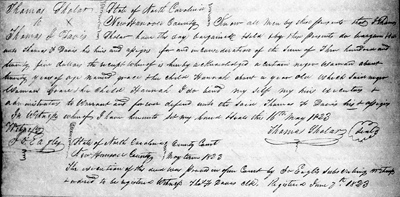 Thomas Phelan } State of North Carolina
to } New Hanover County } Know all men by these presents that I Thomas
Thomas F Davis } Phelan have this day bargained & sold & by these presents do bargain & sell
unto Thomas F Davis his heirs and assigns for and in consideration of the Sum of Three hundred and
twenty five dollars the receipt whereof is hereby acknowledged a certain negro Woman about
twenty years of age named Grace & her child Hannah about a year old which said negro
Woman Grace & her child Hannah I do bind my self my heirs executors &
administrators to Warrant and forever defend unto the said Thomas F Davis his heirs & assigns
In Witness whereof I have hereunto set my hand & seal this 16th May 1823
Witness Thomas Phelan (seal)
J Eagles } State of North Carolina } County Court
New Hanover County } May term 1823
The execution of this deed was proved in open Court by Jos Eagles subscribing witness
& ordered to be registered Witness Tho F Davis clk. Registered June 7th 1823